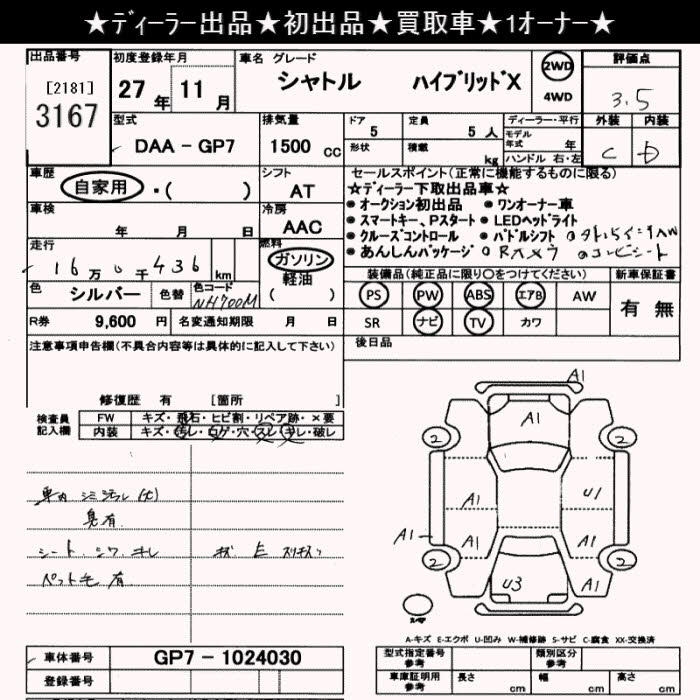 ★ディーラー出品★初出品★買取車★1オーナー★
出品番号 初度登録年月 車名 グレード 評価点
[2181] 27年 11月 シャトル ハイブリッドX 2WD 3.5
3167 4WD 外装 内装
型式 排気量 ドア 定員 ディーラー・平行 C D
DAA - GP7 1500 cc 5 5人 モデル年式 年
形状 積載 kg ハンドル 右・左
車歴 シフト セールスポイント(正常に機能するものに限る)
自家用・( ) AT ★ディーラー下取出品車★
車検 冷房 ●オークション初出品 ●ワンオーナー車
年 月 日 AAC ●スマートキー、Pスタート ●LEDヘッドライト
走行 燃料 ●クルーズコントロール ●パドルシフト
16万0千436km ガソリン ●あんしんパッケージ ○Rカメラ ○コンビシート
軽油 装備品(純正品に限り○をつけてください) 新車保証書
色 シルバー 色替 色コード NH700M ( ) PS PW ABS エアB AW 有 無
R券 9,600 円 名変通知期限 月 日 SR ナビ TV カワ
注意事項申告欄(不具合内容等は具体的に記入して下さい) 後日品
修復歴 有 [箇所 ]
検査員 FW キズ・飛石・ヒビ割・リペア跡・×要
記入欄 内装 キズ・汚レ・コゲ・穴・スレ・キレ・破レ
A1
A1
2 2
A1 U1
A1 A1 A1
2 2
U3 A1
車内 シミ 汚レ (大)
臭有
シート シワ キレ
ペット毛 有
A-キズ E-エクボ U-凹み W-補修跡 S-サビ C-腐食 XX-交換済
車体番号 GP7 - 1024030 型式指定番号 参考 類別区分 参考
登録番号 車庫証明用 参考 長さ cm 幅 cm 高さ cm